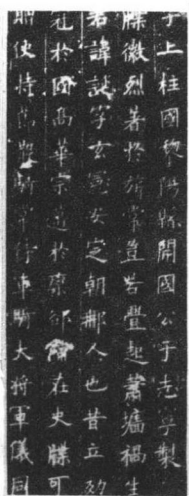 子上柱國黎陽縣開國公于志寧製
牒徽烈著於旂常豈若釁起蕭墻禍生
君諱誕字玄憲安定朝那人也昔立効
光於國高華宗邁於欒郤備在史牒可
贈使持節散騎常侍車騎大將軍儀同